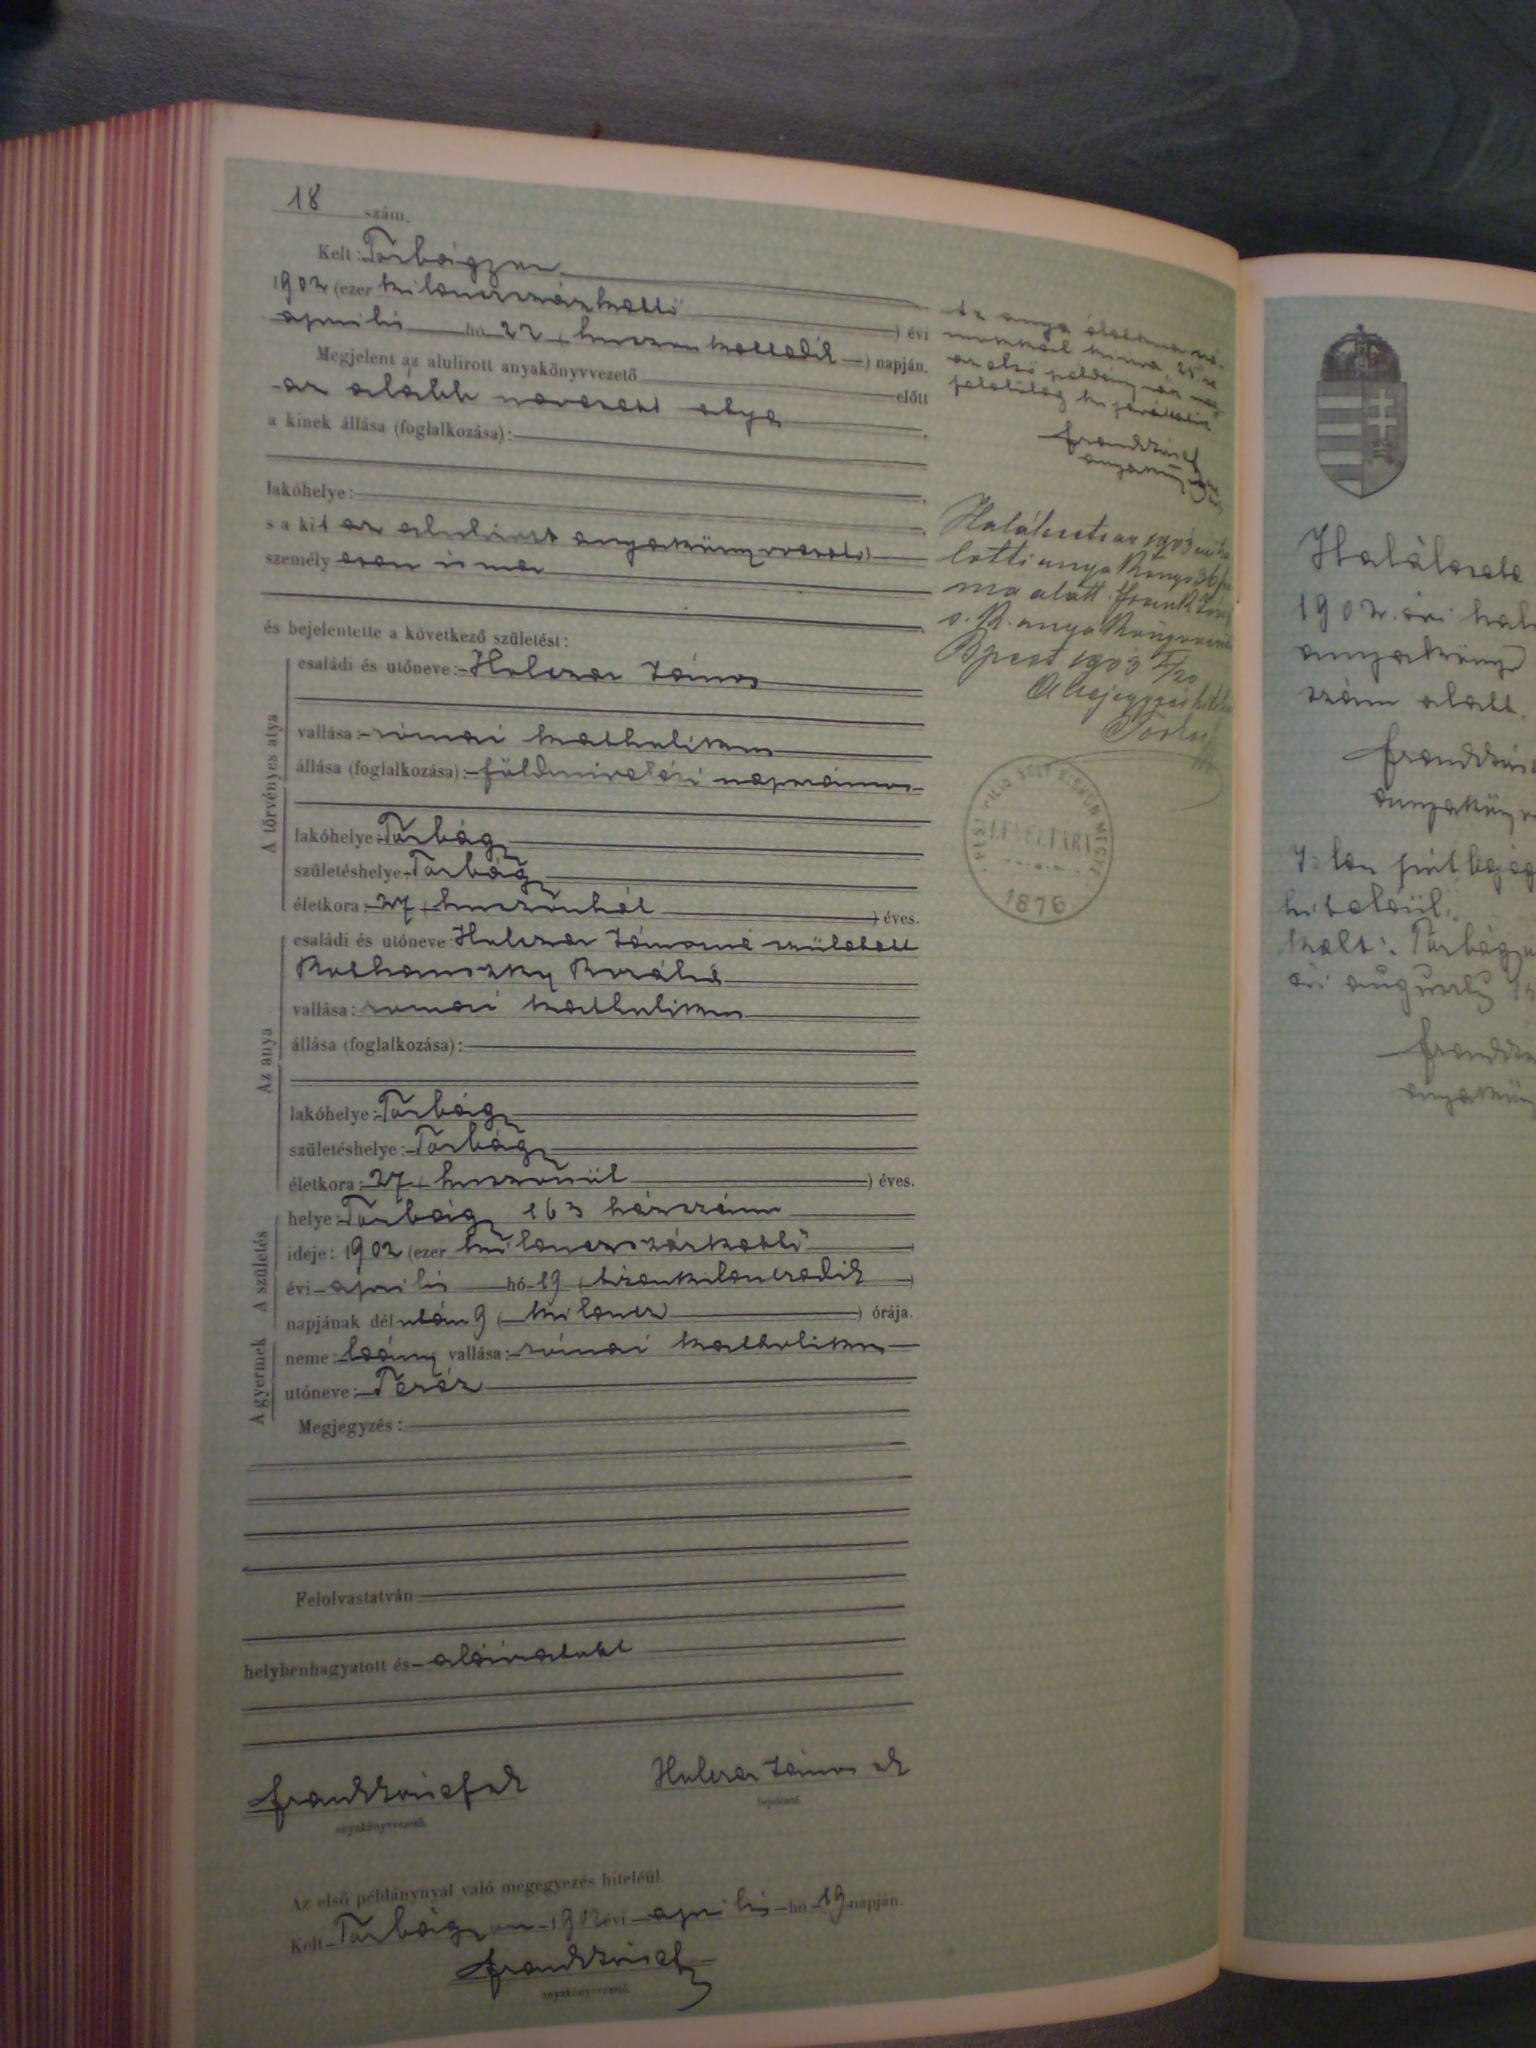 18 szám.
Kelt: Torbágyon
1902 (ezer kilenczszázkettő) évi
április hó 22 (huszonkettedik) napján.
Megjelent az alulirott anyakönyvvezető előtt
az alább nevezett atya
a kinek állása (foglalkozása):
lakóhelye:
s a kit az alulirott anyakönyvvezető
személyesen ismer
és bejelentette a következő születést:
A törvényes atya
családi és utóneve: Holczer János
vallása: római katholikus
állása (foglalkozása): földmivelési napszámos
lakóhelye: Torbágy
születéshelye: Torbágy
életkora: 27 (huszonhét) éves.
Az anya
családi és utóneve Holczer Jánosné született
Rozália
vallása: római katholikus
állása (foglalkozása):
lakóhelye: Torbágy
születéshelye: Torbágy
életkora: 27 ( ) éves.
A születés
helye: Torbágy 163 házszám
ideje: 1902 (ezer kilenczszázkettő
évi április hó 19 (tizenkilenczedik)
napjának délután 9 (kilencz) órája.
A gyermek
neme: leány vallása: római katholikus
utóneve: Teréz
Megjegyzés:
Felolvastatván
helybenhagyatott és aláiratott
Frank József sk
anyakönyvvezető.
Holczer János sk
bejelentő.
Az első példánynyal való megegyezés hiteléül.
Kelt Torbágyon 1902 évi április hó 19 napján.
Frank József
anyakönyvvezető.
Az anya életkora
az első példány
Frank József
Halálesete az 1903
lotti anyakönyv 36
ma alatt. Frank
s. k. anyakönyvvezető
Bpest 1903
A bejegyzés
PEST PILIS SOLT KISKUN MEGYE
LEVÉLTÁRA
1876
Halálesete
1902. évi
anyakönyv
szám alatt.
Frank
hiteléül.
Kelt: Torbágy
évi
Frank